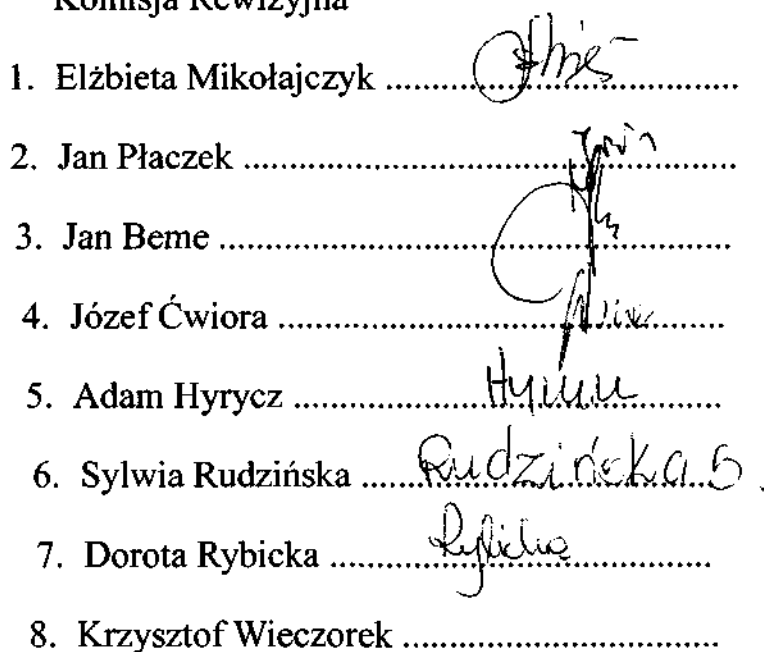 Komisja Rewizyjna
1. Elżbieta Mikołajczyk ....................................
2. Jan Płaczek ..................................................
3. Jan Beme ....................................................
4. Józef Ćwiora .............................................
5. Adam Hyrycz ...........................................
6. Sylwia Rudzińska ..... Rudzińska S.
7. Dorota Rybicka ........... Rybicka
8. Krzysztof Wieczorek ................................